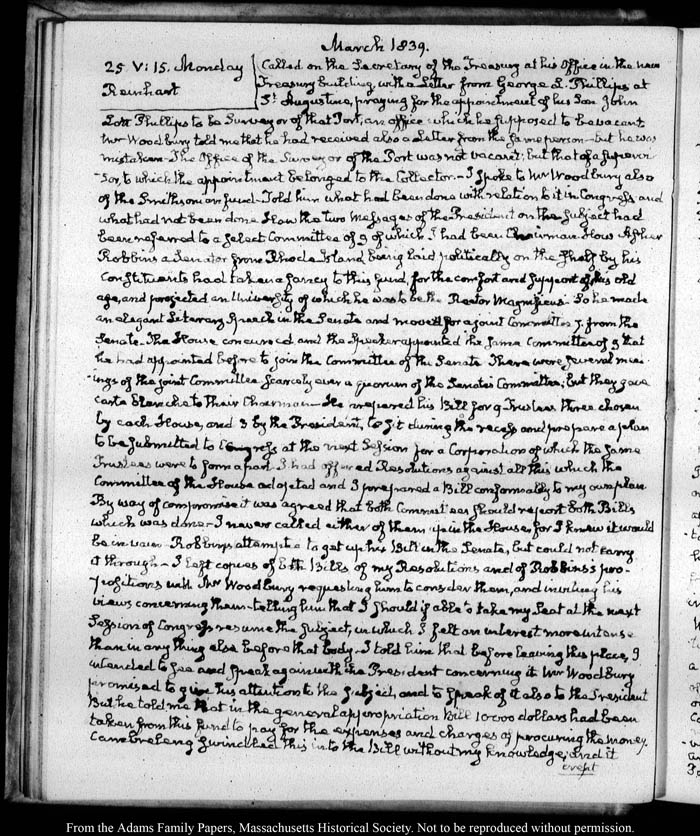 March 1839.
25 V:15. Monday
Reinhart
Called on the Secretary of the Treasury at his Office in the new
Treasury building, with a Letter from George L. Phillips at
St. Augustine, praying for the appointment of his Son John
Lott Phillips to be Surveyor of that Port, an office which he supposed to be vacant
Mr Woodbury told me that he had received also a Letter from the same person—but he was
mistaken—The Office of the Surveyor of the Port was not vacant; but that of a
to which the appointment belonged to the Collector—I spoke to Mr Woodbury also
of the Smithsonian fund—Told him what had been done with relation to it in Congress and
what had not been done. How the two Messages of the President on the subject had
been referred to a select Committee of 9 of which I had been Chairman. How Asher
Robbins a Senator from Rhode Island being laid politically on the shelf by his
Constituents had taken a fancy to this fund, for the comfort and support of his old
age, and projected an University of which he was to be the Rector Magnificus. So he made
an elegant Literary Speech in the Senate and moved for a joint Committee 7. from the
Senate. The House concurred and the Speaker appointed the same Committee of 9 that
he had appointed before to join the Committee of the Senate There were several meet-
ings of the joint Committee scarcely ever a quorum of the Senate's Committee; but they gave
carte blanche to their Chairman—He prepared his Bill for 9 Trustees three chosen
by each House, and 3 by the President, to sit during the recess and prepare a plan
to be submitted to Congress at the next Session for a Corporation of which the same
Trustees were to form a part. I had offered Resolutions against all this which the
Committee of the House adopted and I prepared a Bill conformably to my own plan
By way of compromise it was agreed that both Committees should report both Bills
which was done—I never called either of them up in the House for I knew it would
be in vain—Robbins attempted to get up his Bill in the Senate, but could not carry
it through—I left copies of both Bills of my Resolutions and of Robbins's pro-
positions with Mr Woodbury requesting him to consider them, and inviting his
views concerning them—telling him that I should if able to take my Seat at the next
Session of Congress resume the subject, in which I felt an interest more intense
than in any thing else before that body—I told him that before leaving this place, I
intended to see and speak again with the President concerning it Mr Woodbury
promised to give his attention to the subject, and to speak of it also to the President
But he told me that in the general appropriation Bill 10000 dollars had been
taken from this fund to pay for the expenses and charges of procuring the money.
Cambreleng this into the Bill without my knowledge; and it
crept
From the Adams Family Papers, Massachusetts Historical Society. Not to be reproduced without permission.